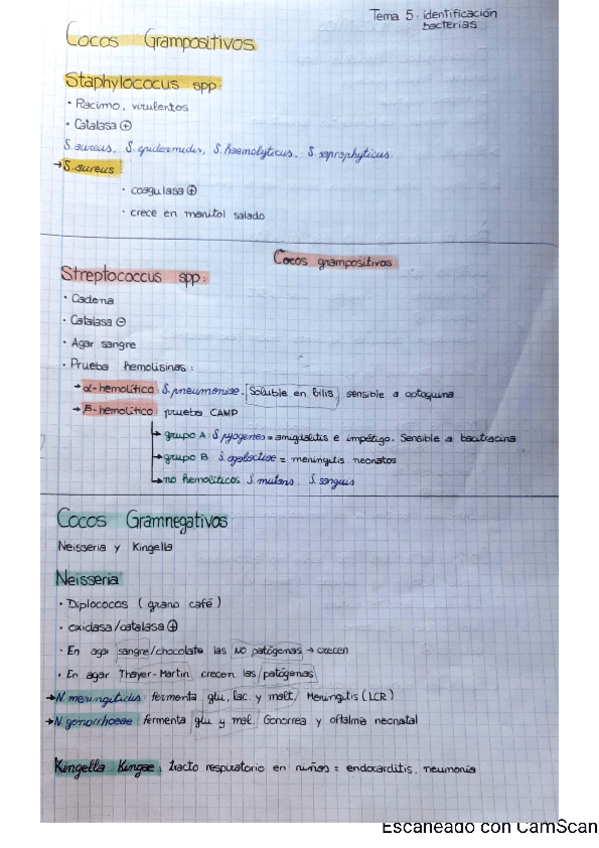 Tema 5: identificación
bacterias
Cocos Grampositivos
Staphylococus spp:
· Racimo, virulentos
· Catalasa ⊕
S. aureus, S. epidermidis, S. haemolyticus, S. saprophyticus
→ S. aureus
· coagulasa ⊕
· crece en manitol salado
Cocos grampositivos
Streptococcus spp:
· Cadena
· Catalasa ⊖
· Agar sangre
· Prueba hemolisinas:
→ α-hemolítico: S. pneumoniae. Soluble en bilis sensible a optoquina
→ B-hemolítico: prueba CAMP
→ grupo A: S. pyogenes = amigdalitis e impétigo. Sensible a bacitracina
→ grupo B: S. agalactiae = meningitis neonatos
→ no hemolíticos S. mutans S. sanguis
Cocos Gramnegativos
Neisseria y Kingella
Neisseria
· Diplococos (grano café)
· oxidasa/catalasa ⊕
· En agar sangre/chocolate las NO patógenas → crecen
· En agar Thayer-Martin crecen las patógenas
→ N. meningitidis: fermenta glu, lac y malt. Meningitis (LCR)
→ N. gonorrhoeae: fermenta glu y mal. Gonorrea y oftalmia neonatal
Kingella Kingae: tracto respiratorio en niños = endocarditis, neumonía
Escaneado con CamScan